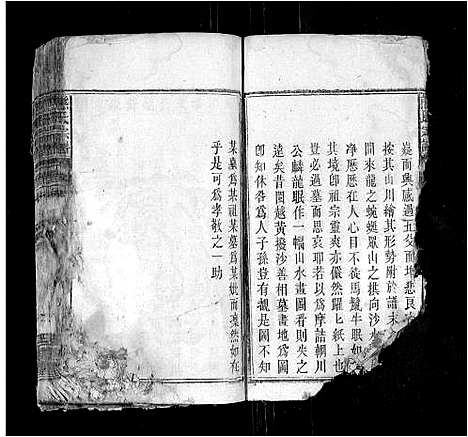 墓而興感過五父而地悲良
按其山川繪其形勢附於譜末
間來龍之蜿蜒羣山之拱向沙水
淨應歷在人心目不徒馬鬣牛眠如
其境卽祖宗靈爽亦儼然躍上紙上也
豈必過墓而思哀耶若以爲摩詰輞川
公麟龍眠作一幅山水畫圖看則失之
遠矣昔閩越黃撥沙善相墓畫地爲圖
卽知休咎爲人子孫豈有覩是圖不知
某墓爲某祖某墓爲某妣而凜然如在
乎是可爲孝敬之一助